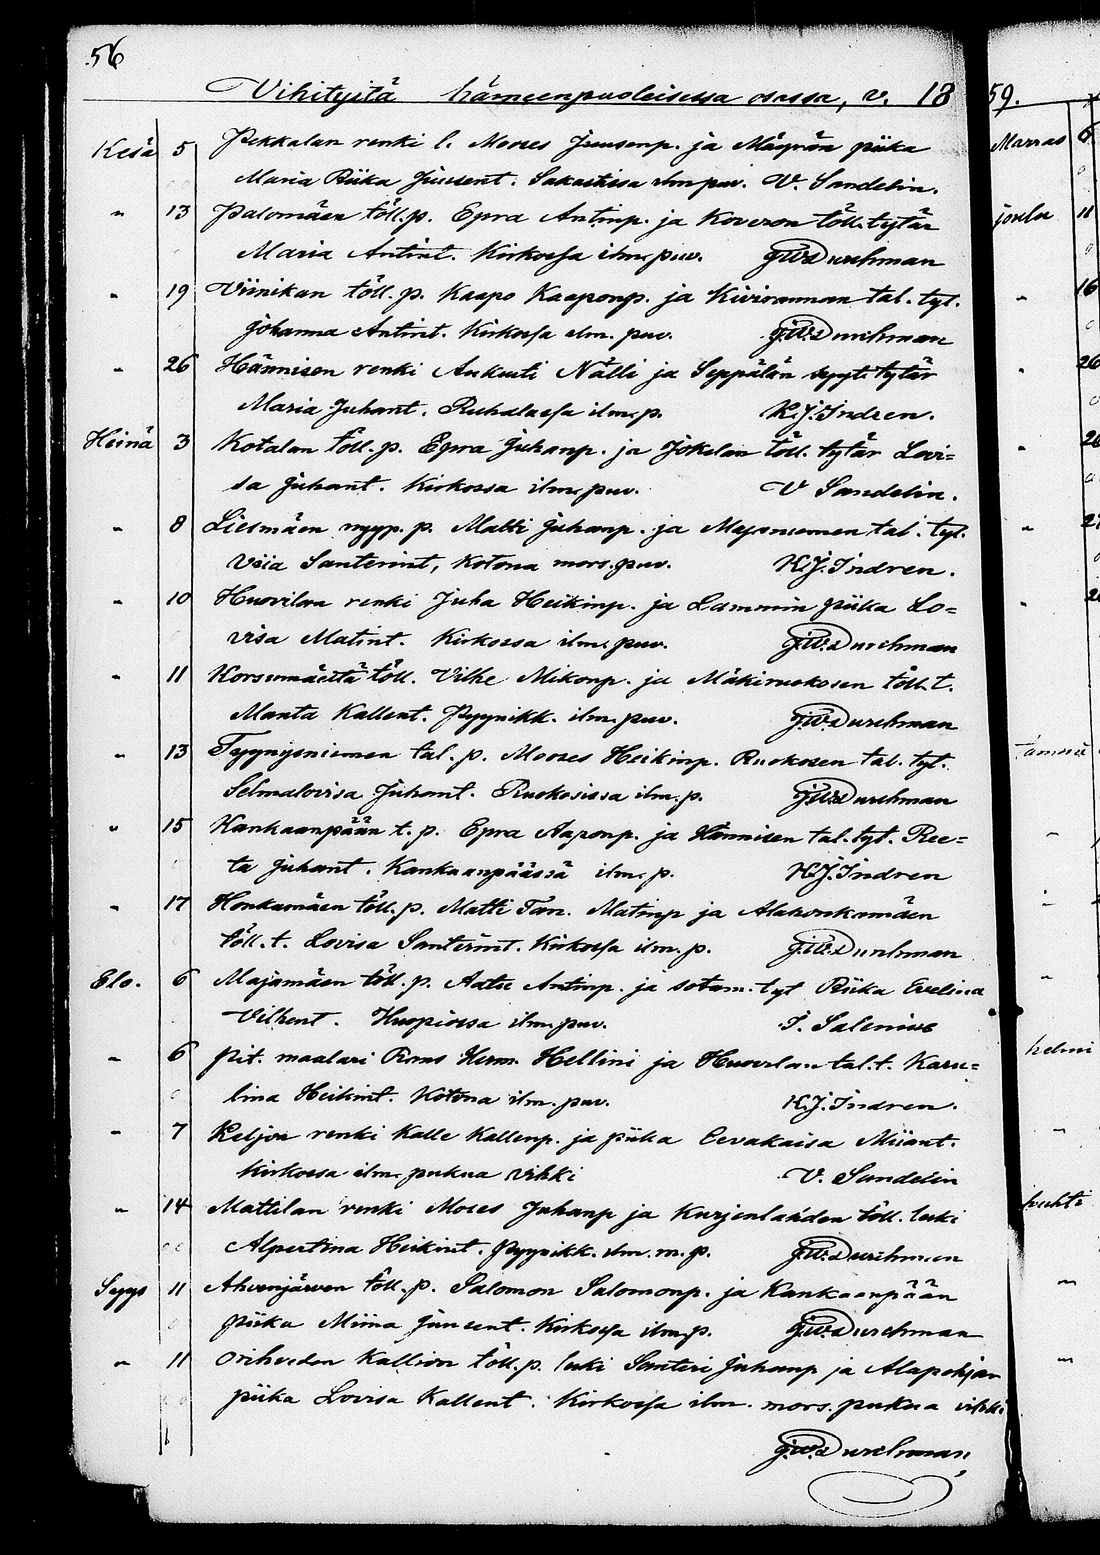 56
Vihityitä hämeenpuoleisessa osassa, v. 18
Kesä 5 Pekkalan renki l. Mooses Juusenp. ja Mäyrän piika
Maria Riika Juusent. Sakastissa ilm puv. V. Sandelin.
" 13 Palomäen töll.p. Epra Antinp. ja Koveron töll.tytär
Maria Antint. Kirkossa ilm. puv. J.W. Durchman
" 19 Viinikan töll. p. Kaapo Kaaponp. ja Kivirannan tal. tyt.
Johanna Antint. Kirkossa ilm. puv. J.W. Durchman
" 26 Hännisen renki Aukusti Nätti ja Seppälän syyt. tytär
Maria Juhant. Ruhalassa ilm. p. K.J. Indren.
Heinä 3 Kotalan töll. p. Epra Juhanp. ja Jokelan töll. tytär Lovi=
sa Juhant. Kirkossa ilm. puv. V Sandelin.
" 8 Liesmäen nyyp. p. Matti Juhanp. ja tal. tyt.
Viia Santerint, Kotona mors. puv. K.J. Indren.
" 10 Huovilan renki Juha Heikinp. ja Lammin piika Lo=
visa Matint. Kirkossa ilm. puv. J.W. Durchman
" 11 Korsumäeltä töll. Vilhe Mikonp. ja Mäkiruokosen töll. t.
Manta Kallent. Pyynikk. ilm. puv. J.W. Durchman
" 13 Tyynysniemen tal. p. Mooses Heikinp. Ruokosen tal. tyt.
Selmalovisa Juhant. Ruokosissa ilm. p. J.W. Durchman
" 15 Kankaanpään t. p. Epra Aaponp. ja Hännisen tal. tyt. Ree=
ta Juhant. Kankaanpäässä ilm. p. K.J. Indren
" 17 Honkamäen töll. p. Matti Tan. Matinp ja Alahonkamäen
töll. t. Lovisa Santerint. Kirkossa ilm. p. J.W. Durchman
Elo. 6 Majamäen töll. p. Aatu Antinp. ja sotam. tyt Riika Evelina
Vilhent. Huopiossa ilm. puv. I. Salenius
" 6 Pit. maalari Herm. Hellini ja Huovilan tal. t. Karu=
lina Heikint. Kotona ilm. puv. K.J. Indren.
" 7 Keljon renki Kalle Kallenp. ja piika Eevakaisa Miiant.
Kirkossa ilm. pukua vihki V. Sandelin
" 14 Mattilan renki Moses Juhanp ja Kurjenlahden töll. leski
Alpertina Heikint. Pyynikk. ilm. m. p. J.W. Durchman
Syys 11 Ahvenjärven töll. p. Salomon Salomonp. ja Kankaanpään
piika Miina Juusent. Kirkossa ilm. p. J.W. Durchman
" 11 Orihveden Kallion töll. p. leski Santeri Juhanp ja Alapohjan
piika Lovisa Kallent. Kirkossa ilm. mors. pukua vihki
J.W. Durchman
59.
Marras 6
joulu 11
" 16
" 26
" 26
" 27
" 2
Tammi
"
"
"
helmi
"
huhti
"
"